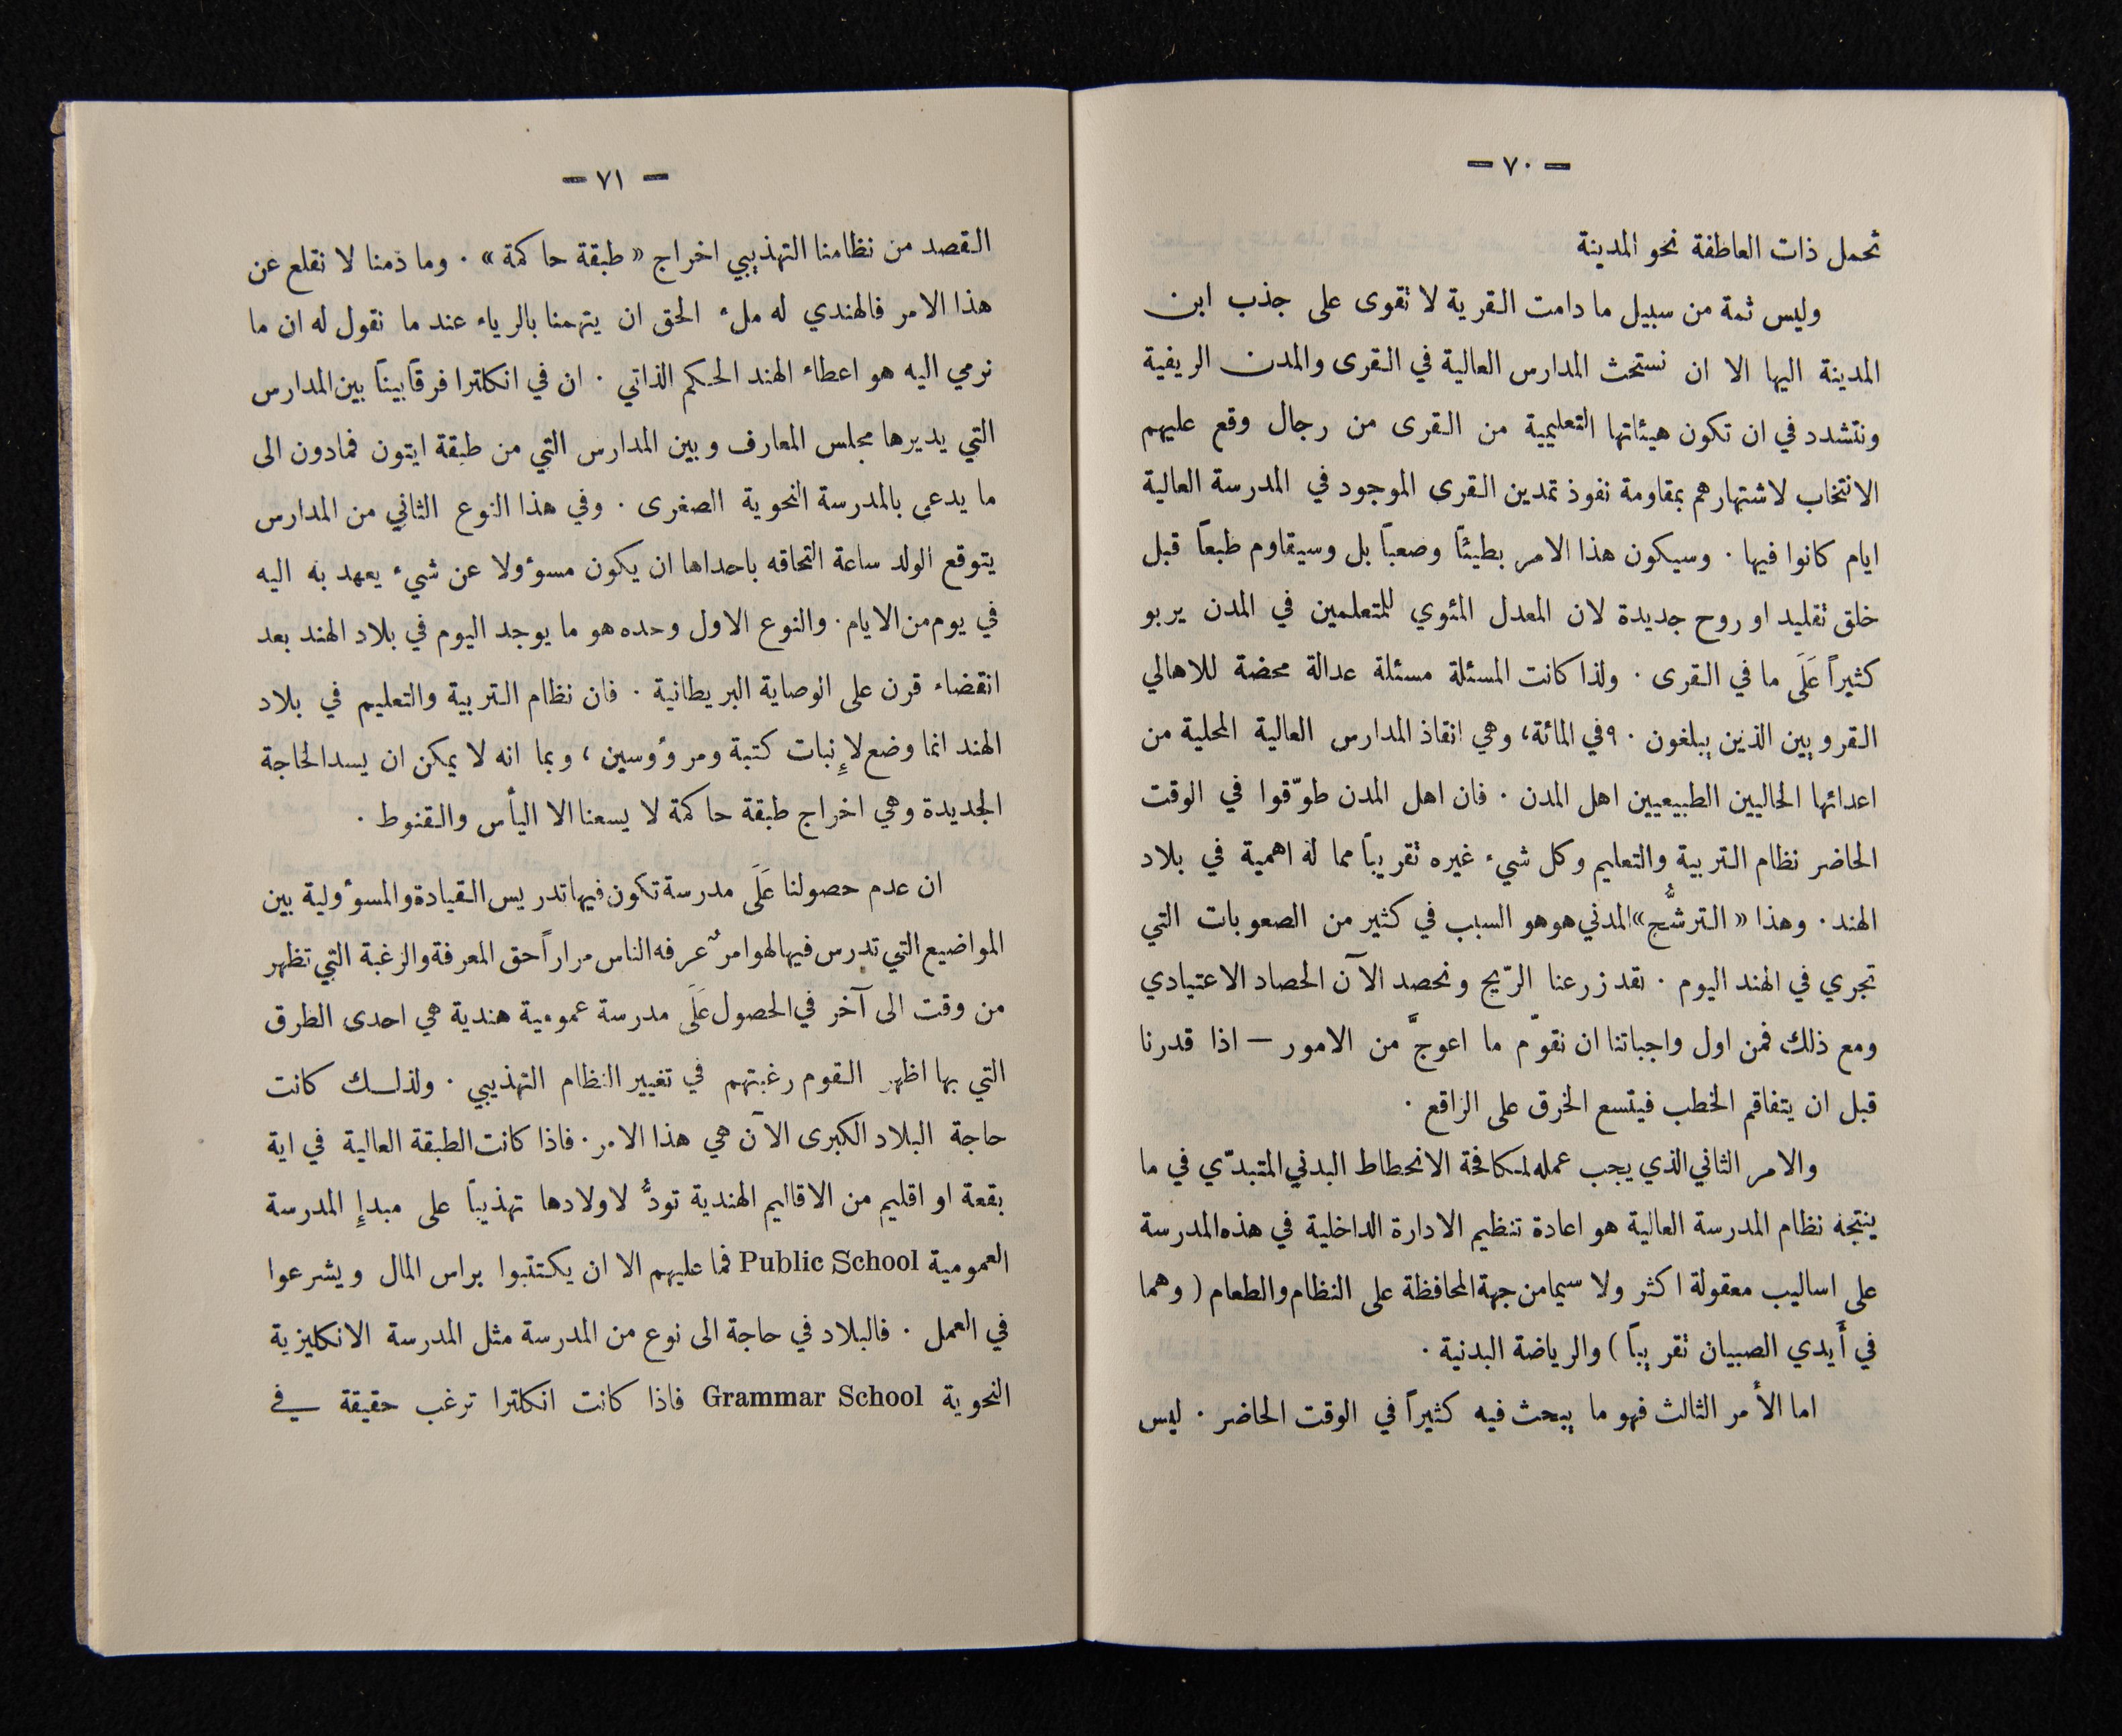 — ٧٠ —
تحمل ذات العاطفة نحو المدينة
وليس ثمة من سبيل ما دامت القرية لا تقوى على جذب ابن
المدينة اليها الا ان نستحث المدارس العالية في القرى والمدن الريفية
ونتشدد في ان تكون هيئاتها التعليمية من القرى من رجال وقع عليهم
الانتخاب لاشتهارهم بمقاومة نفوذ تمدين القرى الموجود في المدرسة العالية
ايام كانوا فيها . وسيكون هذا الامر بطيئًا وصعبًا بل وسيقاوم طبعًا قبل
خلق تقليد او روح جديدة لان المعدل المئوي للمتعلمين في المدن يربو
كثيرًا عَلَى ما في القرى . ولذا كانت المسئلة مسئلة عدالة محضة للاهالي
القرويين الذين يبلغون ٩٠ في المائة، وهي انقاذ المدارس العالية المحلية من
اعدائها الحاليين الطبيعيين اهل المدن . فان اهل المدن طوّقوا في الوقت
الحاضر نظام التربية والتعليم وكل شيء غيره تقريبًا مما له اهمية في بلاد
الهند . وهذا « الترشُّح » المدني هو هو السبب في كثير من الصعوبات التي
تجري في الهند اليوم . لقد زرعنا الرّيح ونحصد الآن الحصاد الاعتيادي
ومع ذلك فمن اول واجباتنا ان نقوّم ما اعوجَّ من الامور — اذا قدرنا
قبل ان يتفاقم الخطب فيتسع الخرق على الراقع .
والامر الثاني الذي يجب عمله لمكافحة الانحطاط البدني المتبدّي في ما
ينتجه نظام المدرسة العالية هو اعادة تنظيم الادارة الداخلية في هذه المدرسة
على اساليب معقولة اكثر ولا سيما من جهة المحافظة على النظام والطعام ( وهما
في أَيدي الصبيان تقريبًا ) والرياضة البدنية .
اما الأمر الثالث فهو ما يبحث فيه كثيرًا في الوقت الحاضر . ليس
— ٧١ —
القصد من نظامنا التهذيبي اخراج « طبقة حاكمة » . وما دمنا لا نقلع عن
هذا الامر فالهندي له ملء الحق ان يتهمنا بالرياء عند ما نقول له ان ما
نرمي اليه هو اعطاء الهند الحكم الذاتي . ان في انكلترا فرقًا بينًا بين المدارس
التي يديرها مجلس المعارف وبين المدارس التي من طبقة ايتون فمادون الى
ما يدعى بالمدرسة النحوية الصغرى . وفي هذا النوع الثاني من المدارس
يتوقع الولد ساعة التحاقه باحداها ان يكون مسوءولا عن شيء يعهد به اليه
في يوم من الايام . والنوع الاول وحده هو ما يوجد اليوم في بلاد الهند بعد
انقضاء قرن على الوصاية البريطانية . فان نظام التربية والتعليم في بلاد
الهند انما وضع لإنبات كتبة ومرؤوسين ، وبما انه لا يمكن ان يسد الحاجة
الجديدة وهي اخراج طبقة حاكمة لا يسعنا الا اليأس والقنوط .
ان عدم حصولنا عَلَى مدرسة تكون فيها تدريس القيادة والمسوءولية بين
المواضيع التي تدرس فيها لهو امرٌ عرفه الناس مرارًا حق المعرفة والرغبة التي تظهر
من وقت الى آخر في الحصول عَلَى مدرسة عمومية هندية هي احدى الطرق
التي بها اظهر القوم رغبتهم في تغيير النظام التهذيبي . ولذلك كانت
حاجة البلاد الكبرى الآن هي هذا الامر . فاذا كانت الطبقة العالية في اية
بقعة او اقليم من الاقاليم الهندية تودُّ لاولادها تهذيبًا على مبدإ المدرسة
العمومية Public School فما عليهم الا ان يكتتبوا براس المال ويشرعوا
في العمل . فالبلاد في حاجة الى نوع من المدرسة مثل المدرسة الانكليزية
النحوية Grammar School فاذا كانت انكلترا ترغب حقيقة في